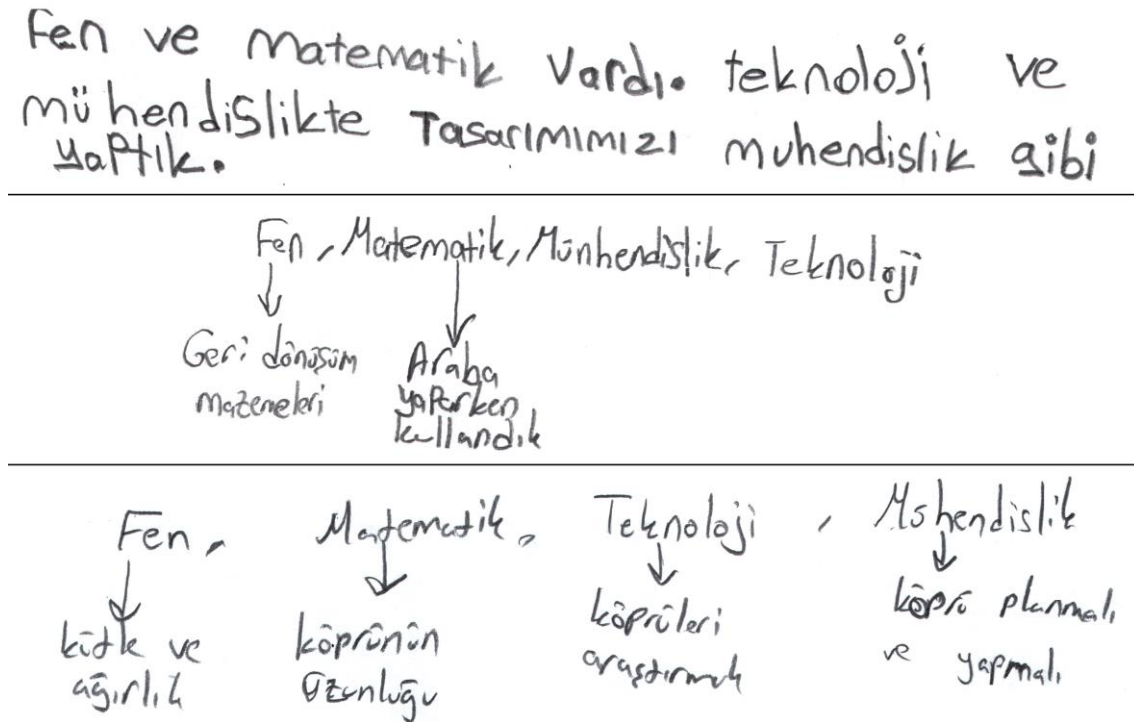 Fen ve matematik vardı. teknoloji ve
mühendislikte Tasarımımızı muhendislik gibi
yaptık.
Fen, Matematik, Münhendislik, Teknoloji
Geri dönüşüm
mazemeleri
Araba
yaparken
kullandık
Fen, Matematik, Teknoloji, Mühendislik
kütle ve
ağırlık
köprünün
uzunluğu
köprüleri
araştırmak
köprü planmalı
ve yapmalı